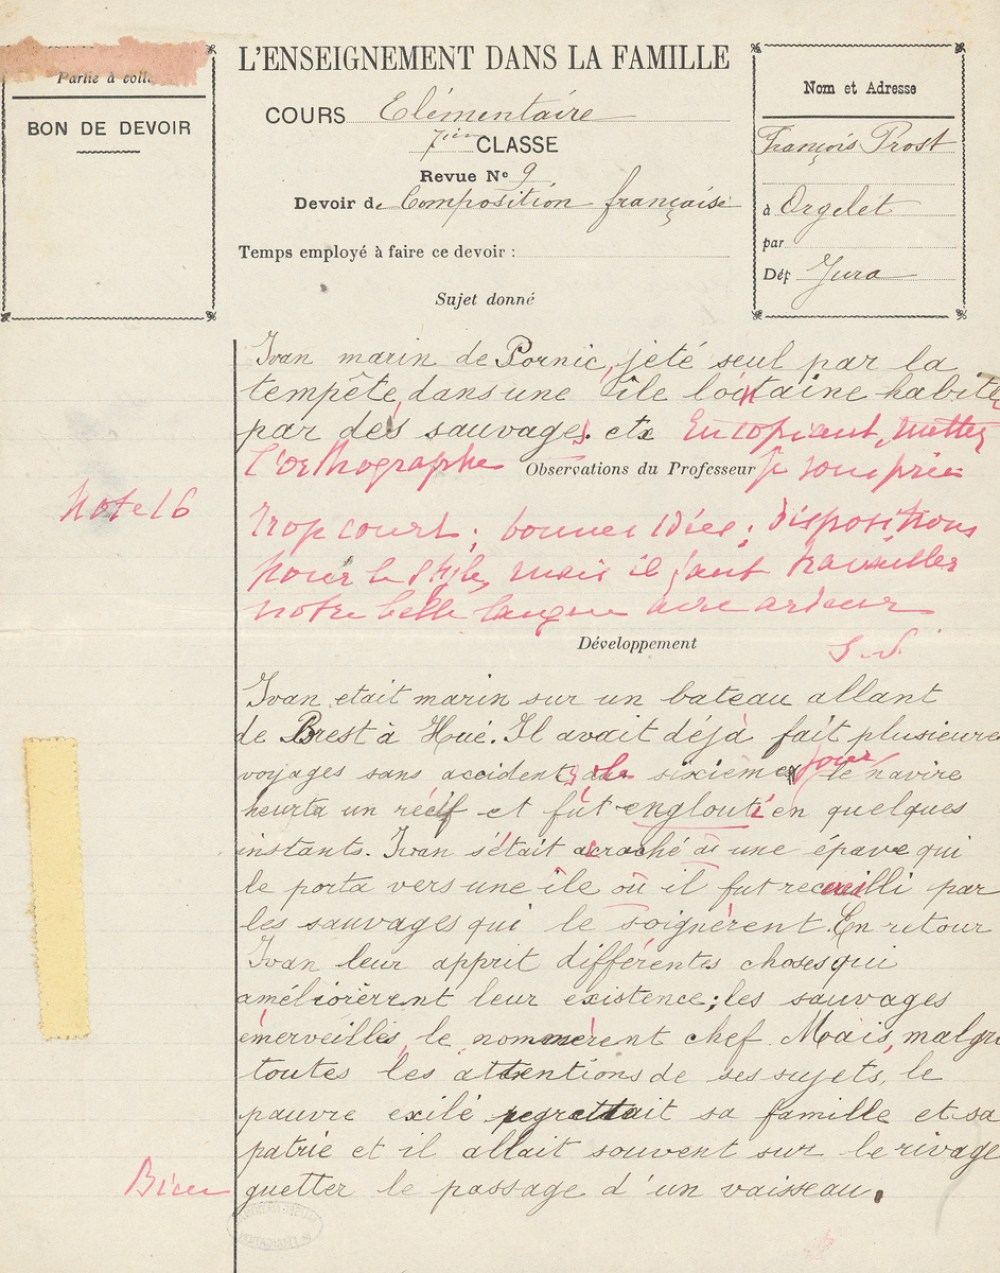 Partie à coll
BON DE DEVOIR
L'ENSEIGNEMENT DANS LA FAMILLE
COURS Elémentaire
7ième CLASSE
Revue Nº 9
Devoir de Composition française
Temps employé à faire ce devoir :
Sujet donné
Nom et Adresse
François Prost
à Orgelet
par
Dép Jura
Ivan marin de Pornic, jeté seul par la
tempête, dans une île lointaine habitée
par des sauvages. etc En copiant, mettez
l'orthographe Observations du Professeur je vous prie
Note 16
Trop court ; bonnes idées ; dispositions
pour le style, mais il faut travailler
notre belle langue avec ardeur
Développement
S. S.
Ivan etait marin sur un bateau allant
de Brest à Hué. Il avait déjà fait plusieurs
voyages sans accidents, le sixième jour le navire
heurta un récif et fut englouti en quelques
instants. Ivan s'était accroché à une épave qui
le porta vers une île où il fut recueilli par
les sauvages qui le soignèrent. En retour
Ivan leur apprit différentes choses qui
améliorèrent leur existence ; les sauvages
émerveillés, le nommèrent chef. Mais, malgré
toutes les attentions de ses sujets, le
pauvre exilé regrettait sa famille et sa
patrie et il allait souvent sur le rivage
Bien guetter le passage d'un vaisseau.